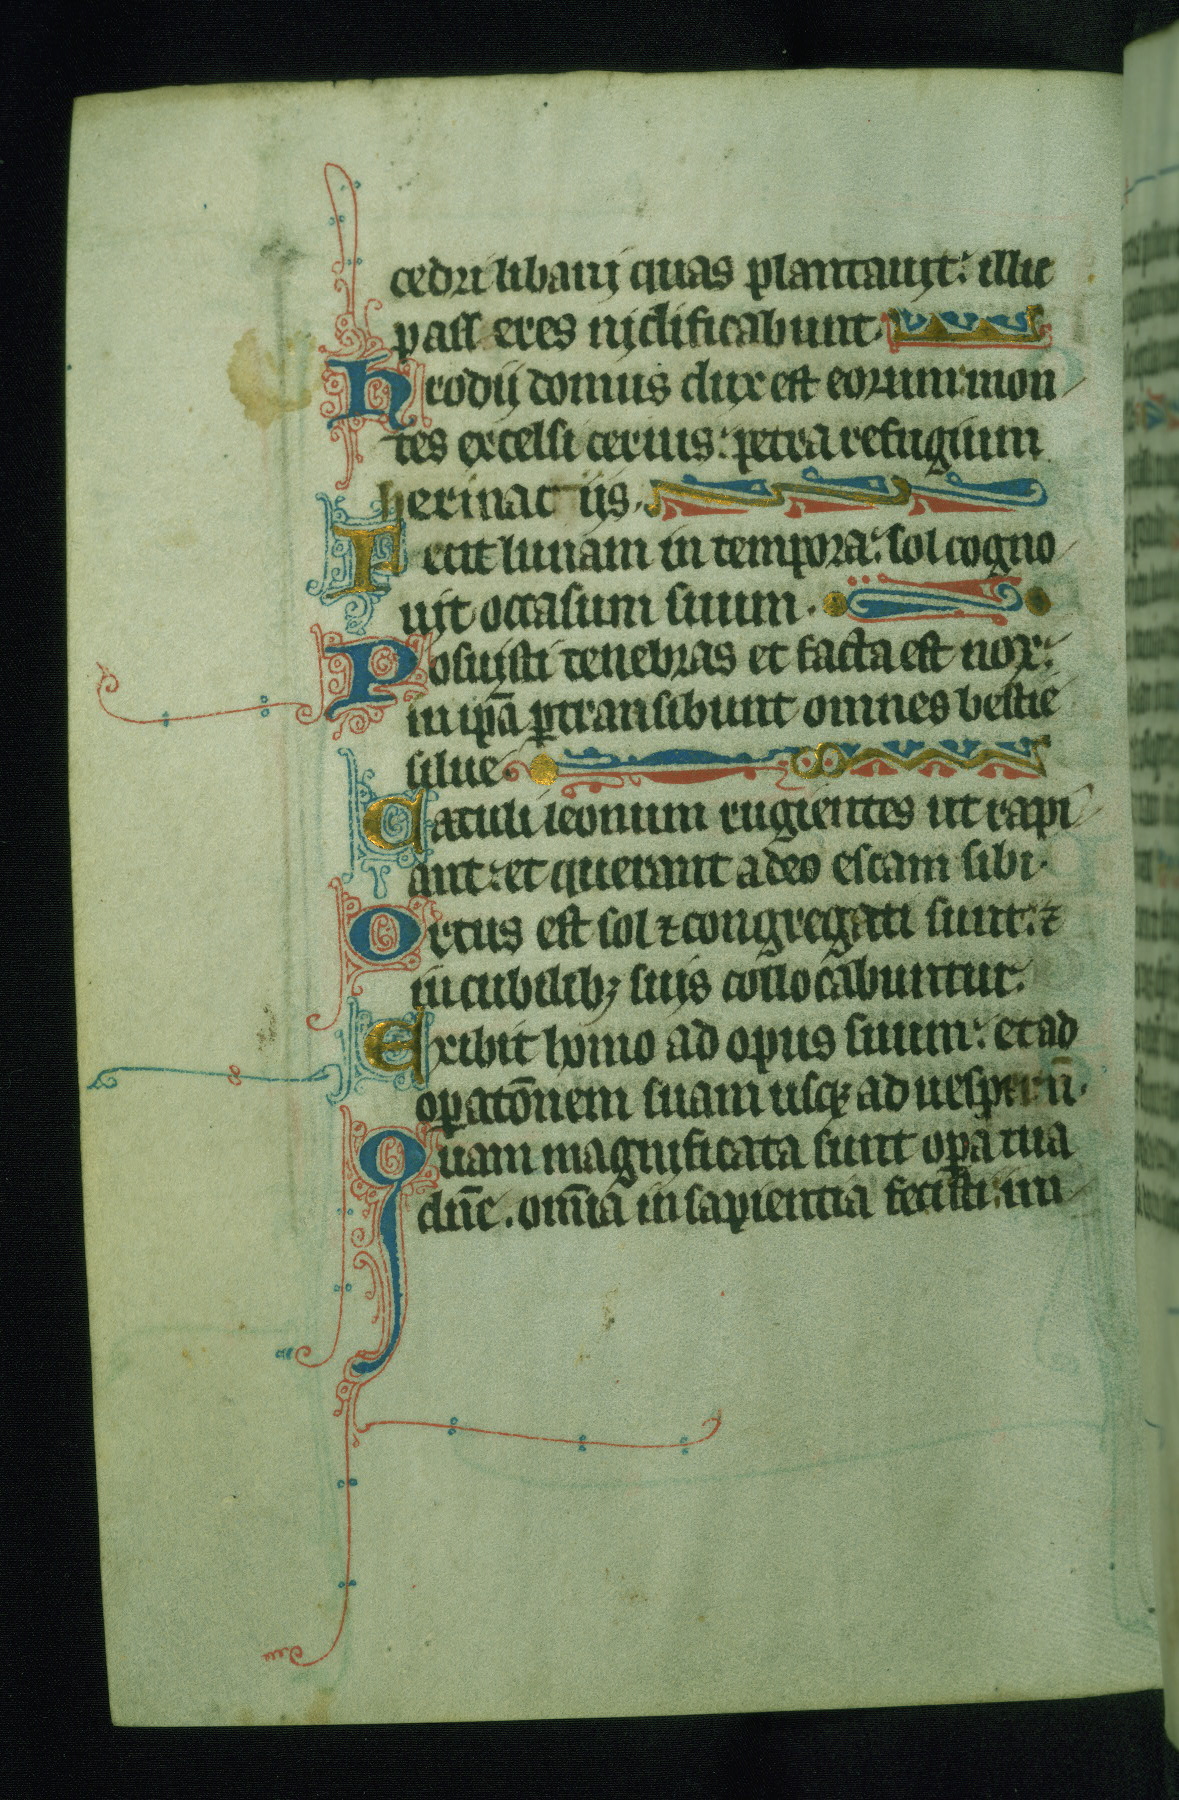 cedri libani quas plantauit: illic
pass eres nidificabunt.
Hrodij domus dux est eorum: mon
tes excelsi ceruis: petra refugium
herinac iis.
Fecit lunam in tempora: sol cogno
uit occasum suum.
Posuisti tenebras et facta est nox:
in ip̄a ꝑtransibunt omnes bestie
silue
Catuli leonum rugientes ut rapi
ant: et querant a deo escam sibi.
Ortus est sol ⁊ congregati sunt: ⁊
in cubilibꝫ suis collocabuntur.
Exibit homo ad opus suum: et ad
oꝑatōnem suam usqꝫ ad uesperū.
Quam magnificata sunt oꝑa tua
dn̄e. om̄ia in sapientia fecisti: im